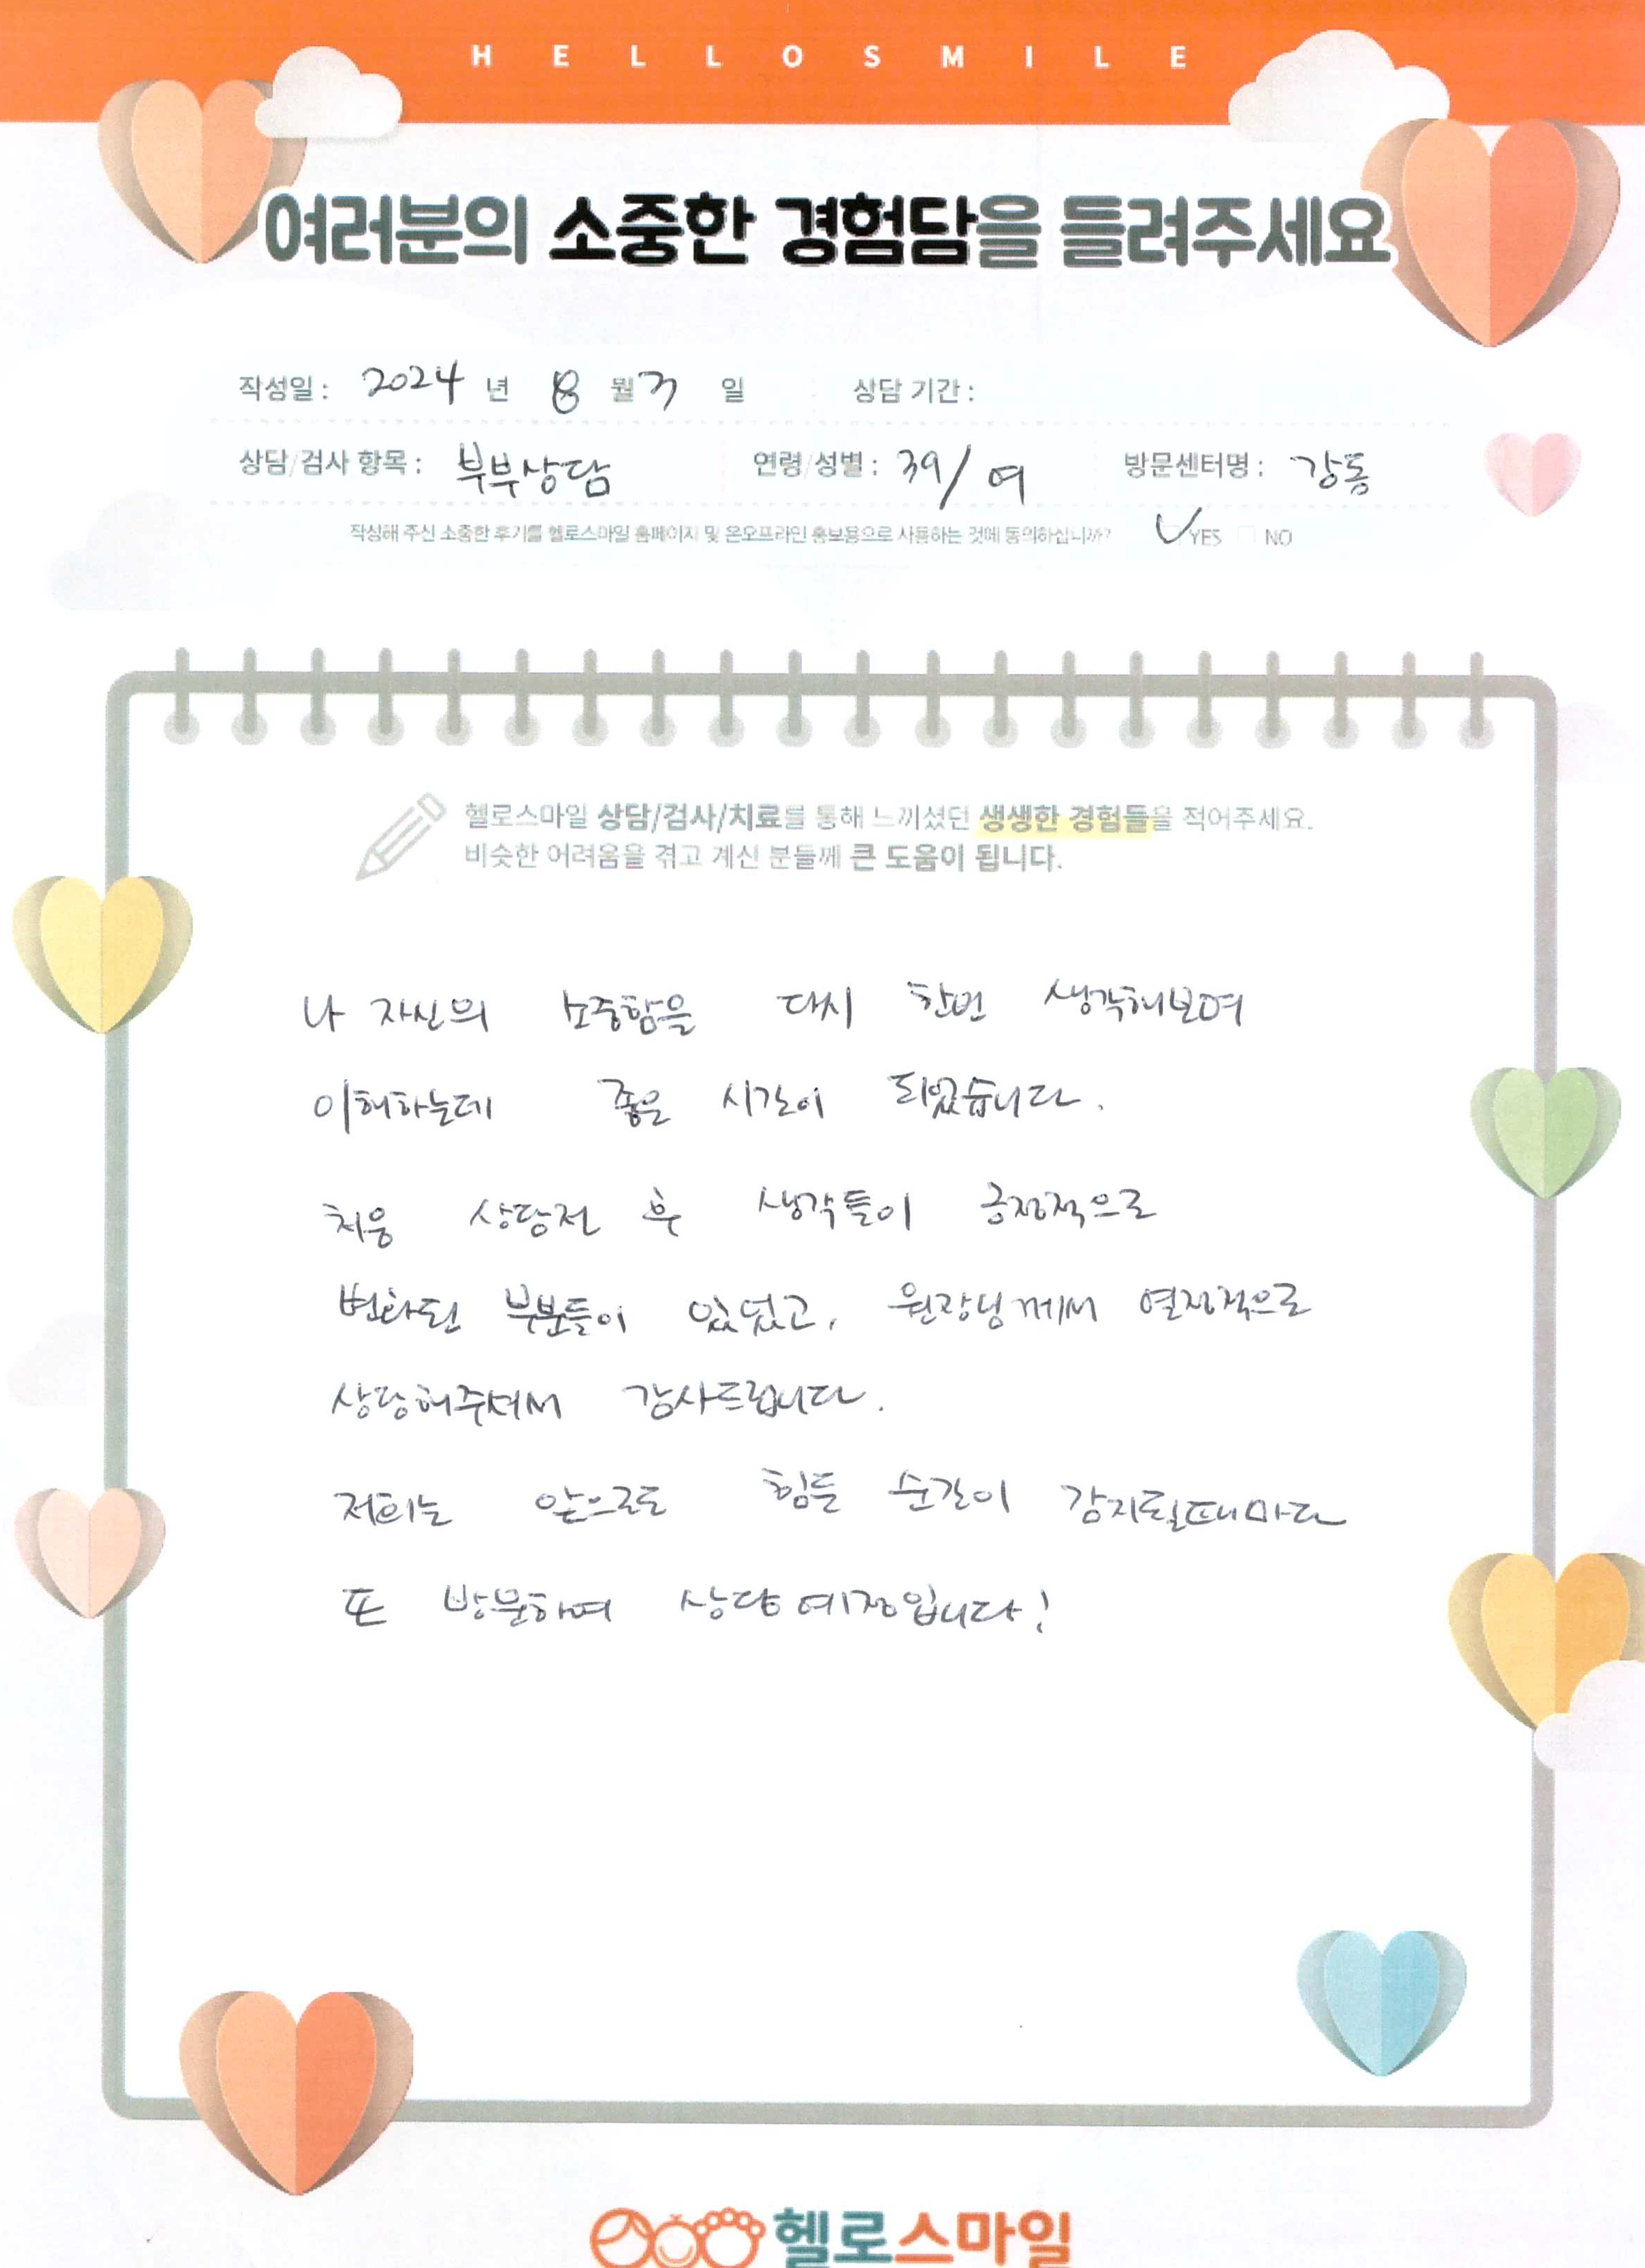 HELLOSMILE
여러분의 소중한 경험담을 들려주세요
작성일 : 2024 년 8 월 3 일 상담 기간 :
상담/검사 항목 : 부부상담 연령/성별 : 39/여 방문센터명 : 강동
작성해 주신 소중한 후기를 헬로스마일 홈페이지 및 온오프라인 홍보용으로 사용하는 것에 동의하십니까? ✓ YES □ NO
헬로스마일 상담/검사/치료를 통해 느끼셨던 생생한 경험들을 적어주세요.
비슷한 어려움을 겪고 계신 분들께 큰 도움이 됩니다.
나 자신의 소중함을 다시 한번 생각해보며
이해하는데 좋은 시간이 되었습니다.
처음 상담전 후 생각들이 긍정적으로
변화된 부분들이 있었고, 원장님께서 열정적으로
상담해주셔서 감사드립니다.
저희는 앞으로도 힘든 순간이 감지될때마다
또 방문하여 상담예정입니다!
헬로스마일